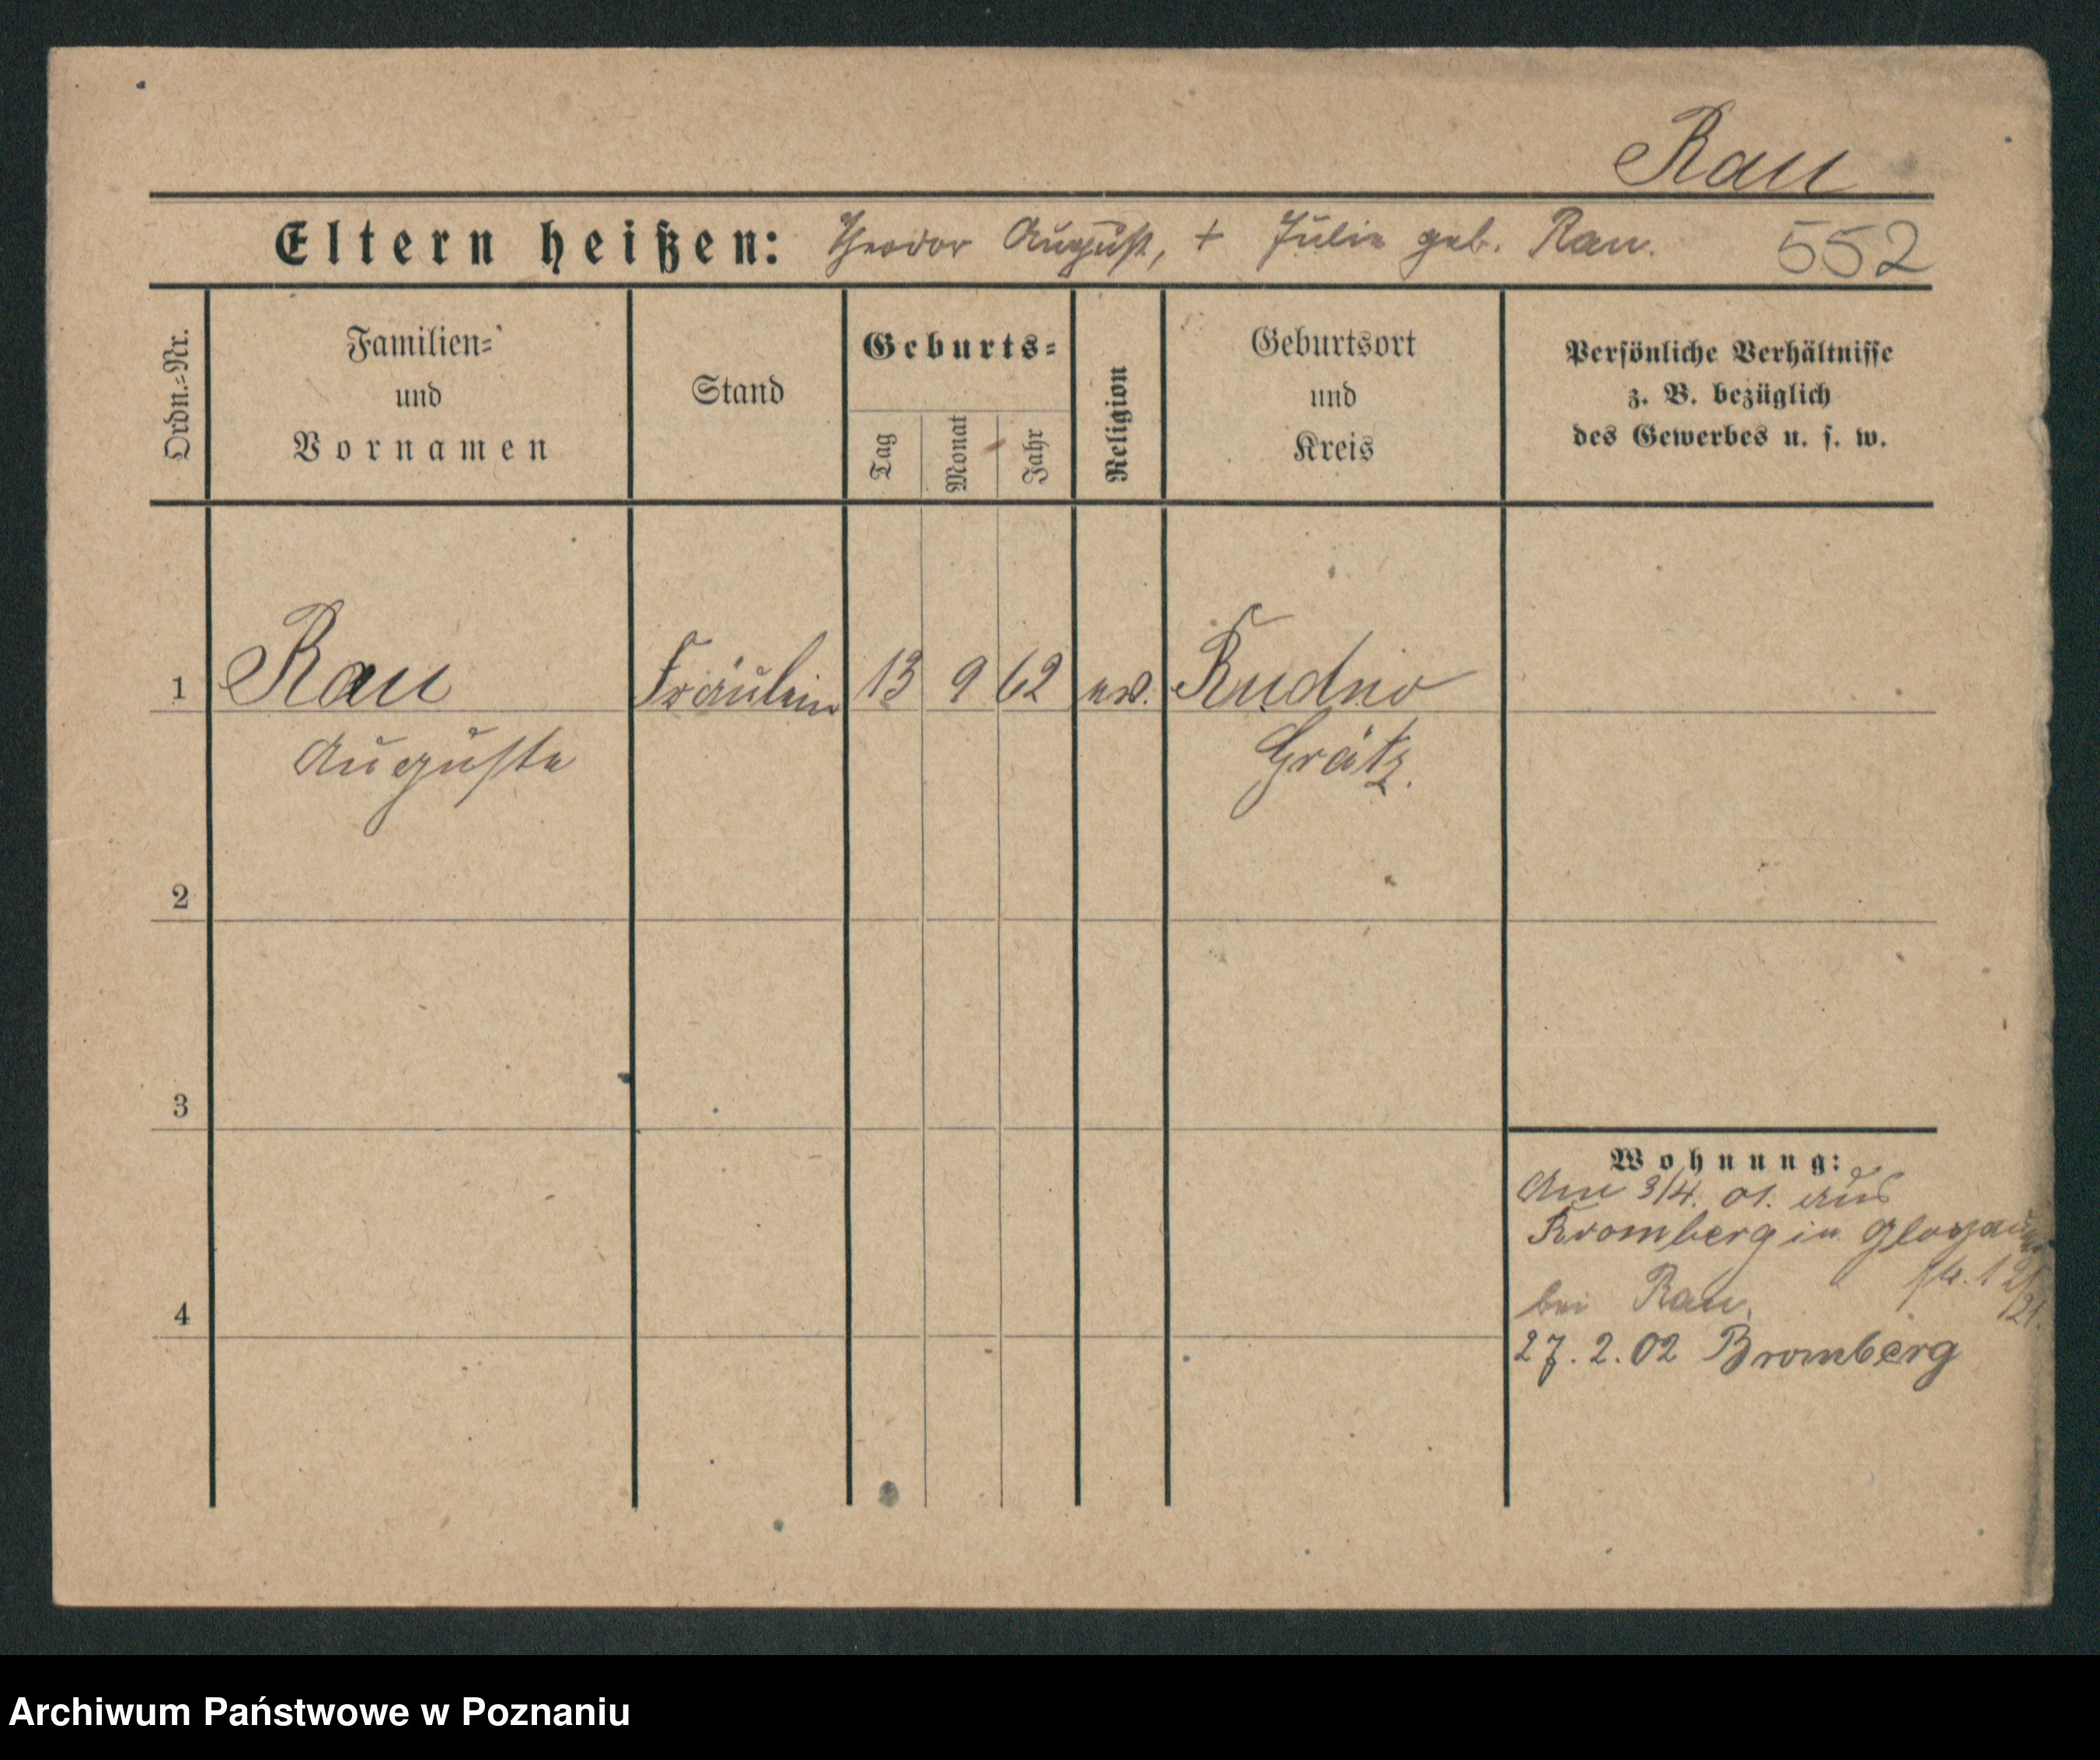 Rau
Eltern heißen: Theodor August, + Julie geb. Rau. 552
Ordn.=Nr.
Familien=
und
Vornamen
Stand
Geburts=
Tag
Monat
Jahr
Religion
Geburtsort
und
Kreis
Persönliche Verhältnisse
z. B. bezüglich
des Gewerbes u. s. w.
1 Rau Fräulein 13 9 62 ev.
Auguste Grätz.
2
3
4
Wohnung:
Am 3/4. 01. aus
Bromberg in
bei Rau.
27. 2. 02 Bromberg
Archiwum Państwowe w Poznaniu